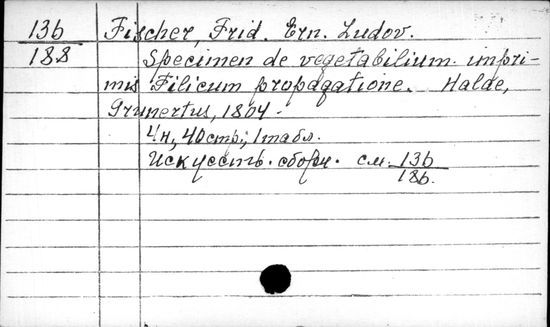 13b Fischer, Frid. Ern. Ludov.
188 Specimen de vegetabilium impri-
mis Filicum propagatione. Halae,
Grunertus, 1804.
4н, 40стр., 1табл.
Искусств. сборн. см. 13b
18b.